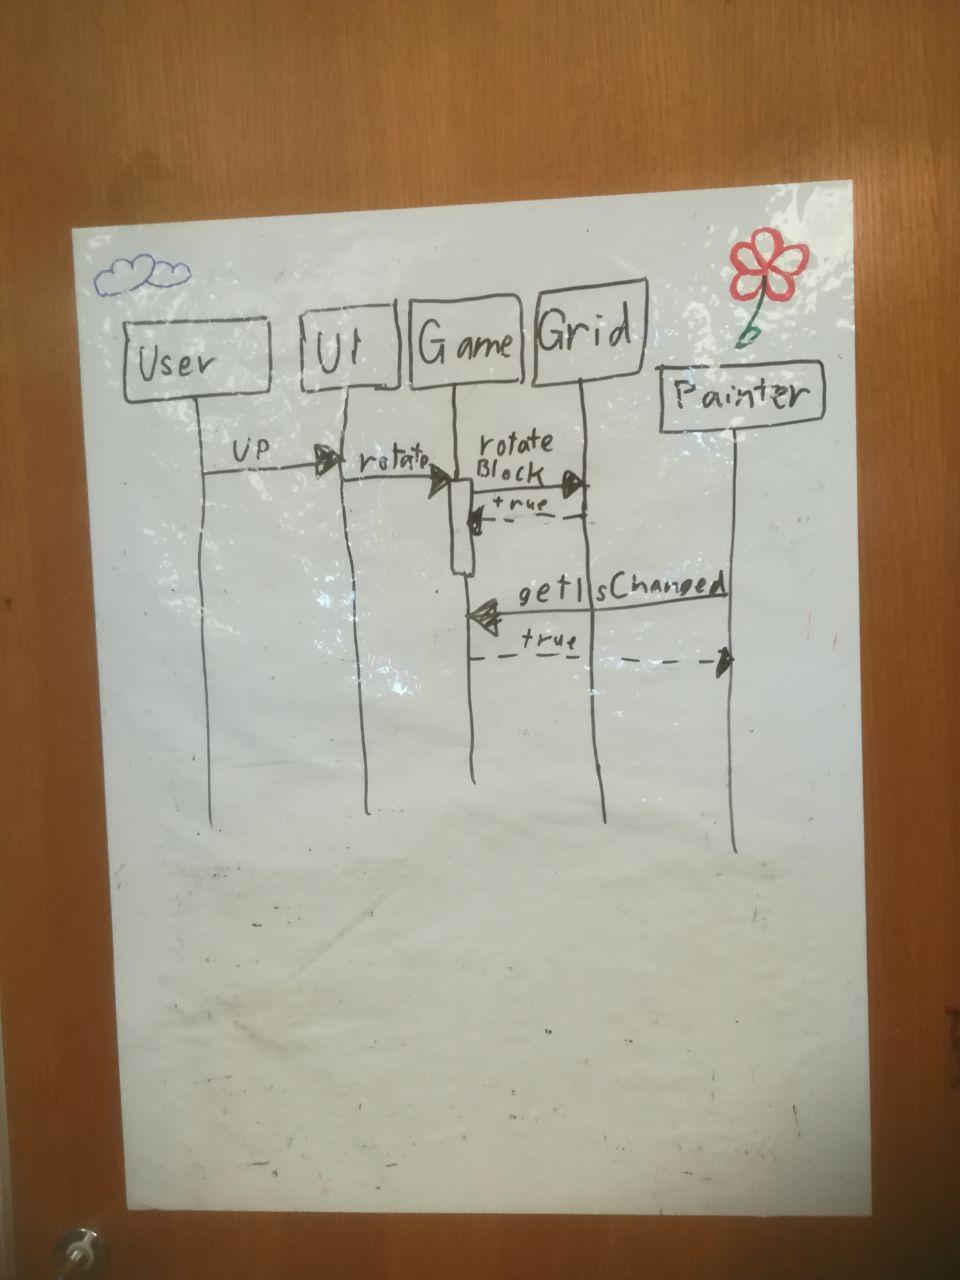 User
UI
Game
Grid
Painter
UP
rotate
rotate
Block
true
getIsChanged
true